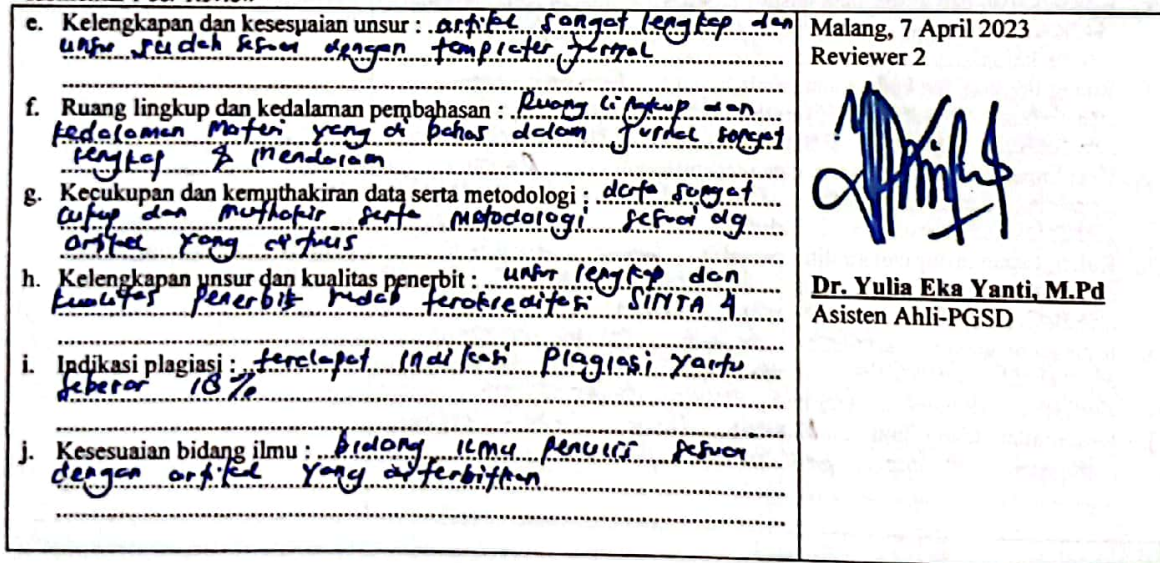 e. Kelengkapan dan kesesuaian unsur : artikel sangat lengkap dan
unsur sudah sesuai dengan templater jurnal
f. Ruang lingkup dan kedalaman pembahasan : Ruang lingkup dan
kedalaman materi yang di bahas dalam jurnal sangat
lengkap & mendalam
g. Kecukupan dan kemuthakiran data serta metodologi : data sangat
cukup dan muthakir serta metodologi sesuai dg
artikel yang di tulis
h. Kelengkapan unsur dan kualitas penerbit : unsur lengkap dan
kualitas penerbit sudah terakreditasi SINTA 4
i. Indikasi plagiasi : terdapat indikasi plagiasi yaitu
sebesar 18 %
j. Kesesuaian bidang ilmu : bidang ilmu penulis sesuai
dengan artikel yang diterbitkan
Malang, 7 April 2023
Reviewer 2
Dr. Yulia Eka Yanti, M.Pd
Asisten Ahli-PGSD